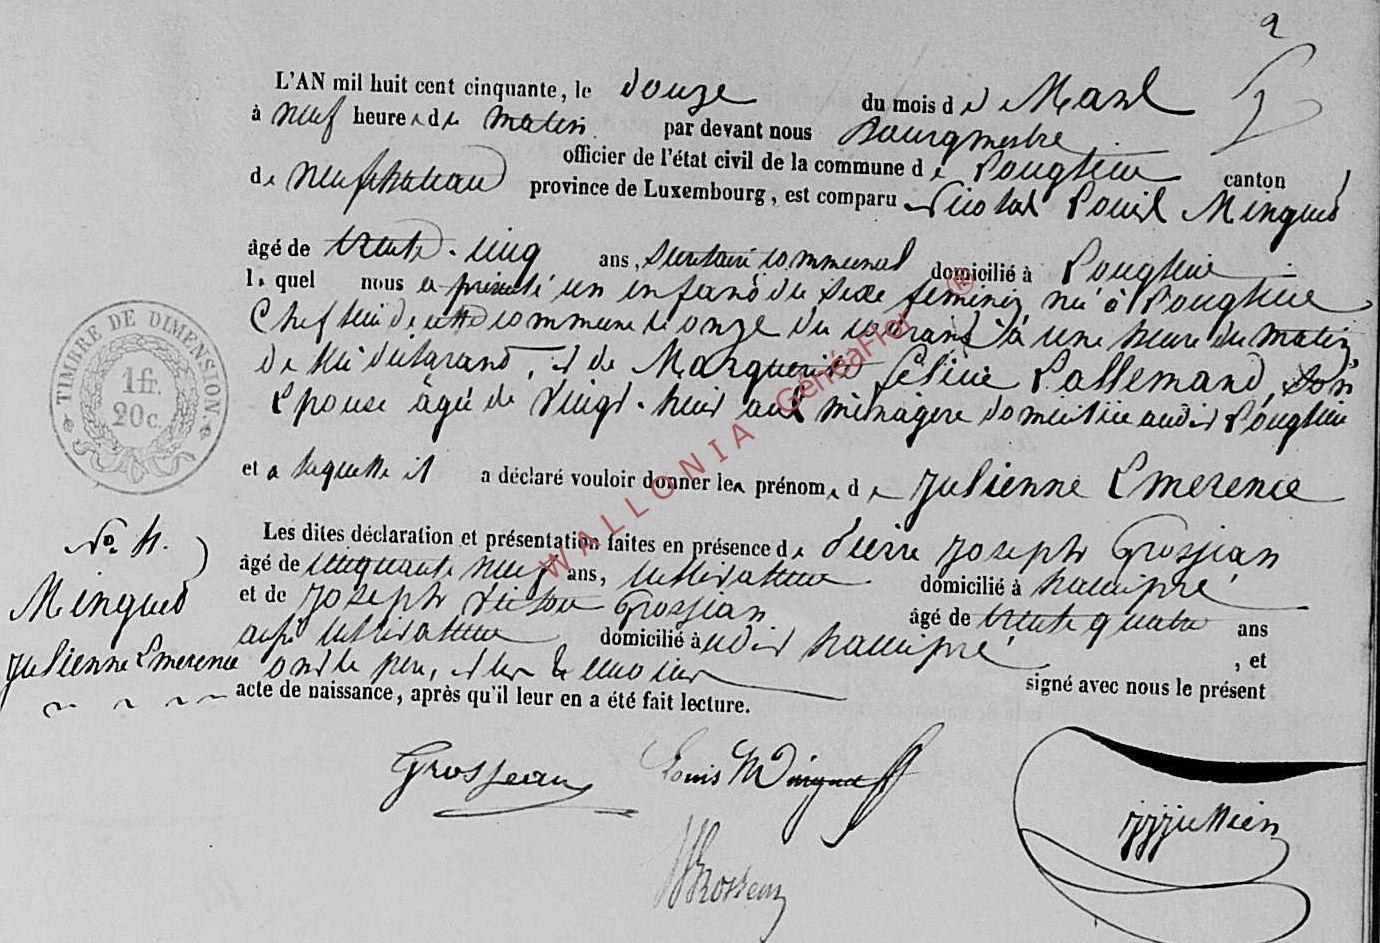 2
L'AN mil huit cent cinquante, le douze du mois de Mars
à neuf heures du matin par devant nous Bourgmestre
officier de l'état civil de la commune de Longlier canton
de neufchateau province de Luxembourg, est comparu Nicolas Louis Minguet
âgé de trente-cinq ans, secretaire communal domicilié à Longlier
lequel nous a présenté un enfant du sexe féminin, né à Longlier
Chef lieu de cette commune le onze du courant à une heure du matin,
de lui déclarant, et de Marguerite Félicie Lallemand, son
Epouse âgée de vingt-huit ans ménagère domiciliée audit Longlier
et a laquelle il a déclaré vouloir donner les prénoms de Julienne Emerence
Les dites déclaration et présentation faites en présence de Pierre Joseph Grosjean
âgé de cinquante neuf ans, cultivateur domicilié à hamipré
et de Joseph Victor Grosjean âgé de trente quatre ans
aussi cultivateur domicilié audit hamipré, et
ont le père, et les témoins signé avec nous le présent
acte de naissance, après qu'il leur en a été fait lecture.
TIMBRE DE DIMENSION
1 fr.
20 c.
No 4.
Minguet
Julienne Emerence
Grosjean Louis Minguet
Grosjean
WALLONIA GénéaFlor ®